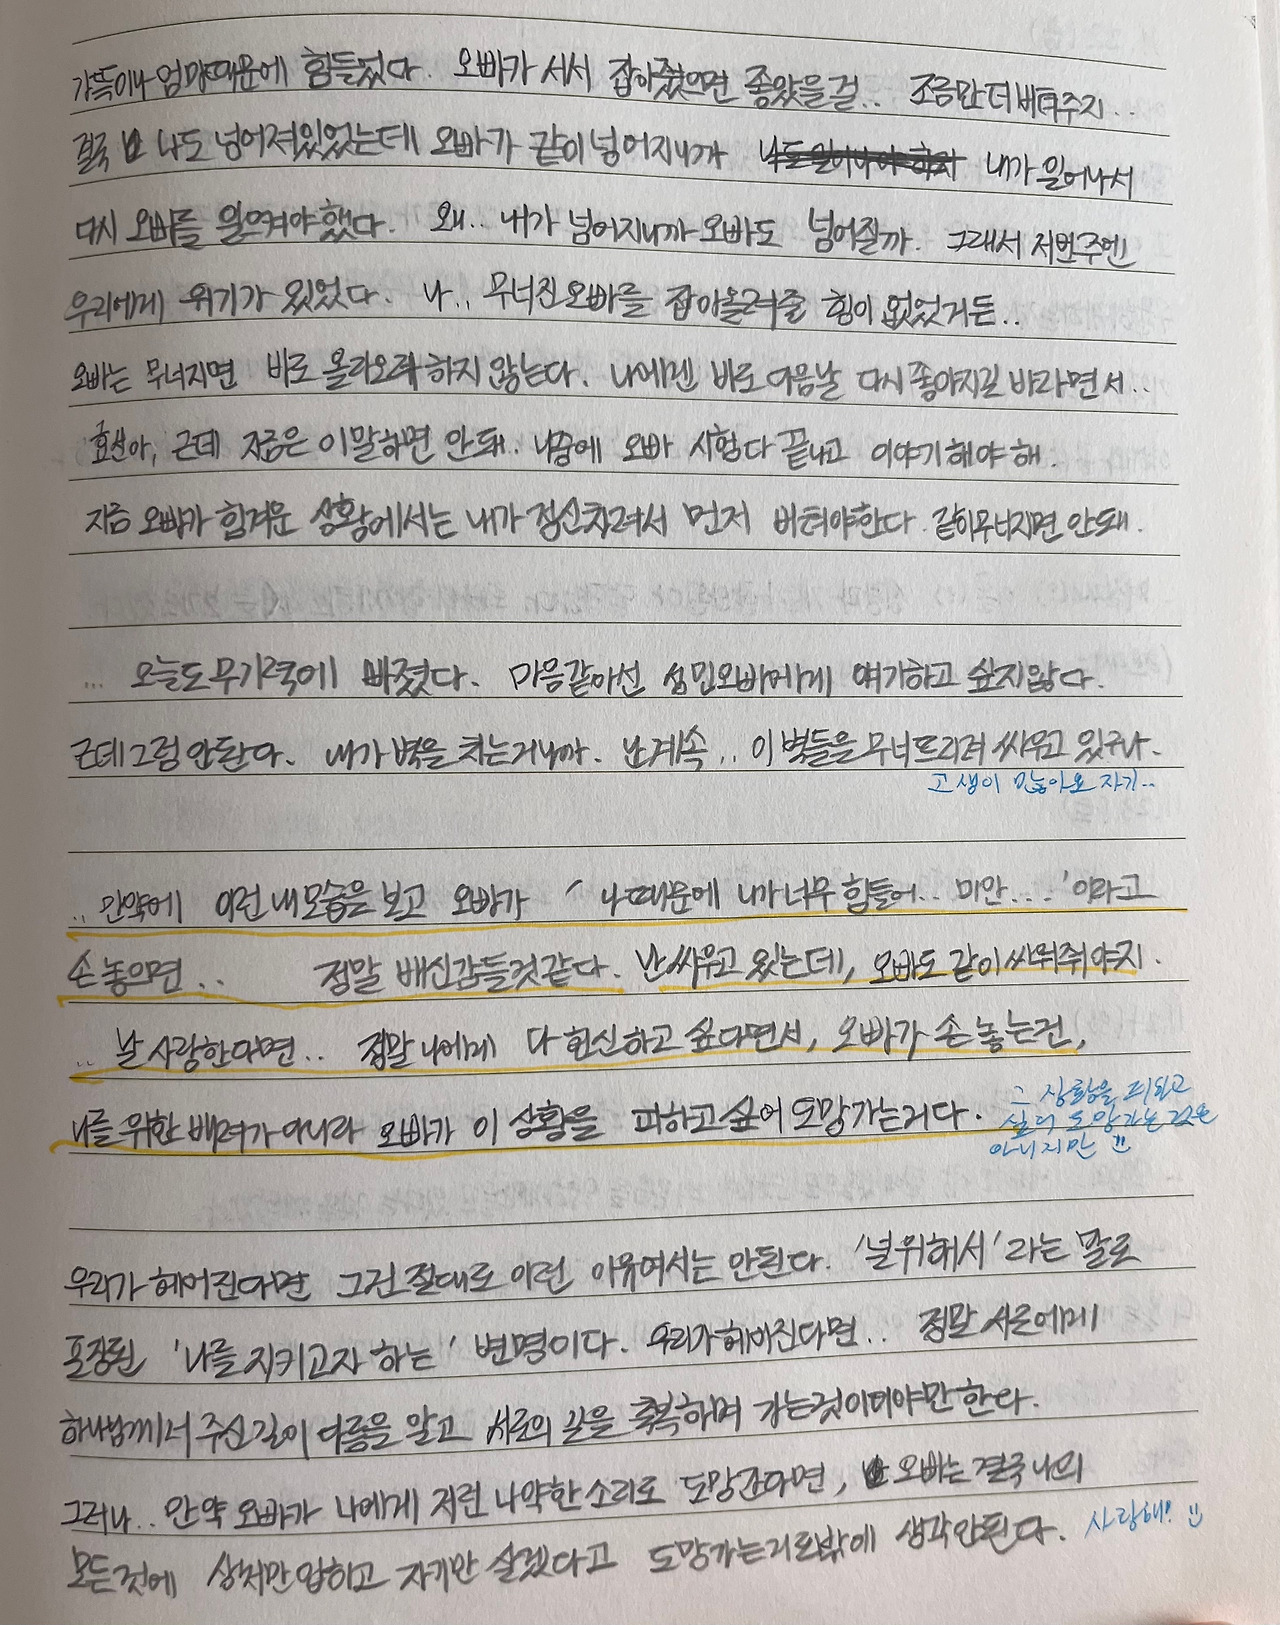 가뜩이나 엄마때문에 힘들었다. 오빠가 서서 잡아줬으면 좋았을걸.. 조금만 더 버텨주지..
결국 나도 넘어져있었는데 오빠가 같이 넘어지니까 나도 일어나야 하지 내가 일어나서
다시 오빠를 일으켜야했다. 왜.. 내가 넘어지니까 오빠도 넘어질까. 그래서 저번주엔
우리에게 위기가 있었다. 나.. 무너진 오빠를 잡아올려줄 힘이 없었거든..
오빠는 무너지면 바로 올라오려 하지 않는다. 나에겐 바로 다음날 다시 좋아지길 바라면서..
효선아, 근데 지금은 이말하면 안돼. 나중에 오빠 시험 다 끝나고 이야기해야 해.
지금 오빠가 힘겨운 상황에서는 내가 정신차려서 먼저 버텨야한다. 같이무너지면 안돼.
... 오늘도 무기력에 빠졌다. 마음같아선 성민오빠에게 얘기하고 싶지않다.
근데 그럼 안된다. 내가 벽을 치는거니까. 난 계속.. 이 벽들을 무너뜨리려 싸우고 있구나.
고생이 많아요 자기..
.. 만약에 이런 내모습을 보고 오빠가 '나때문에 니가 너무 힘들어.. 미안...'이라고
손 놓으면.. 정말 배신감들것같다. 난 싸우고 있는데, 오빠도 같이 싸워줘야지.
.. 날 사랑한다면.. 정말 나에게 다 헌신하고 싶다면서, 오빠가 손 놓는건,
나를 위한 배려가 아니라 오빠가 이 상황을 피하고 싶어 도망가는거다.
그 상황을 피하고
싶어 도망가는 것은
아니지만
우리가 헤어진다면 그건 절대로 이런 이유여서는 안된다. '널위해서'라는 말로
포장된 '나를 지키고자 하는' 변명이다. 우리가 헤어진다면.. 정말 서로에게
하나님께서 주신 길이 다름을 알고 서로의 길을 축복하며 가는것이여야만 한다.
그러나.. 만약 오빠가 나에게 저런 나약한 소리로 도망간다면, 오빠는 결국 나의
모든것에 상처만 입히고 자기만 살겠다고 도망가는거로밖에 생각안된다.
사랑해!